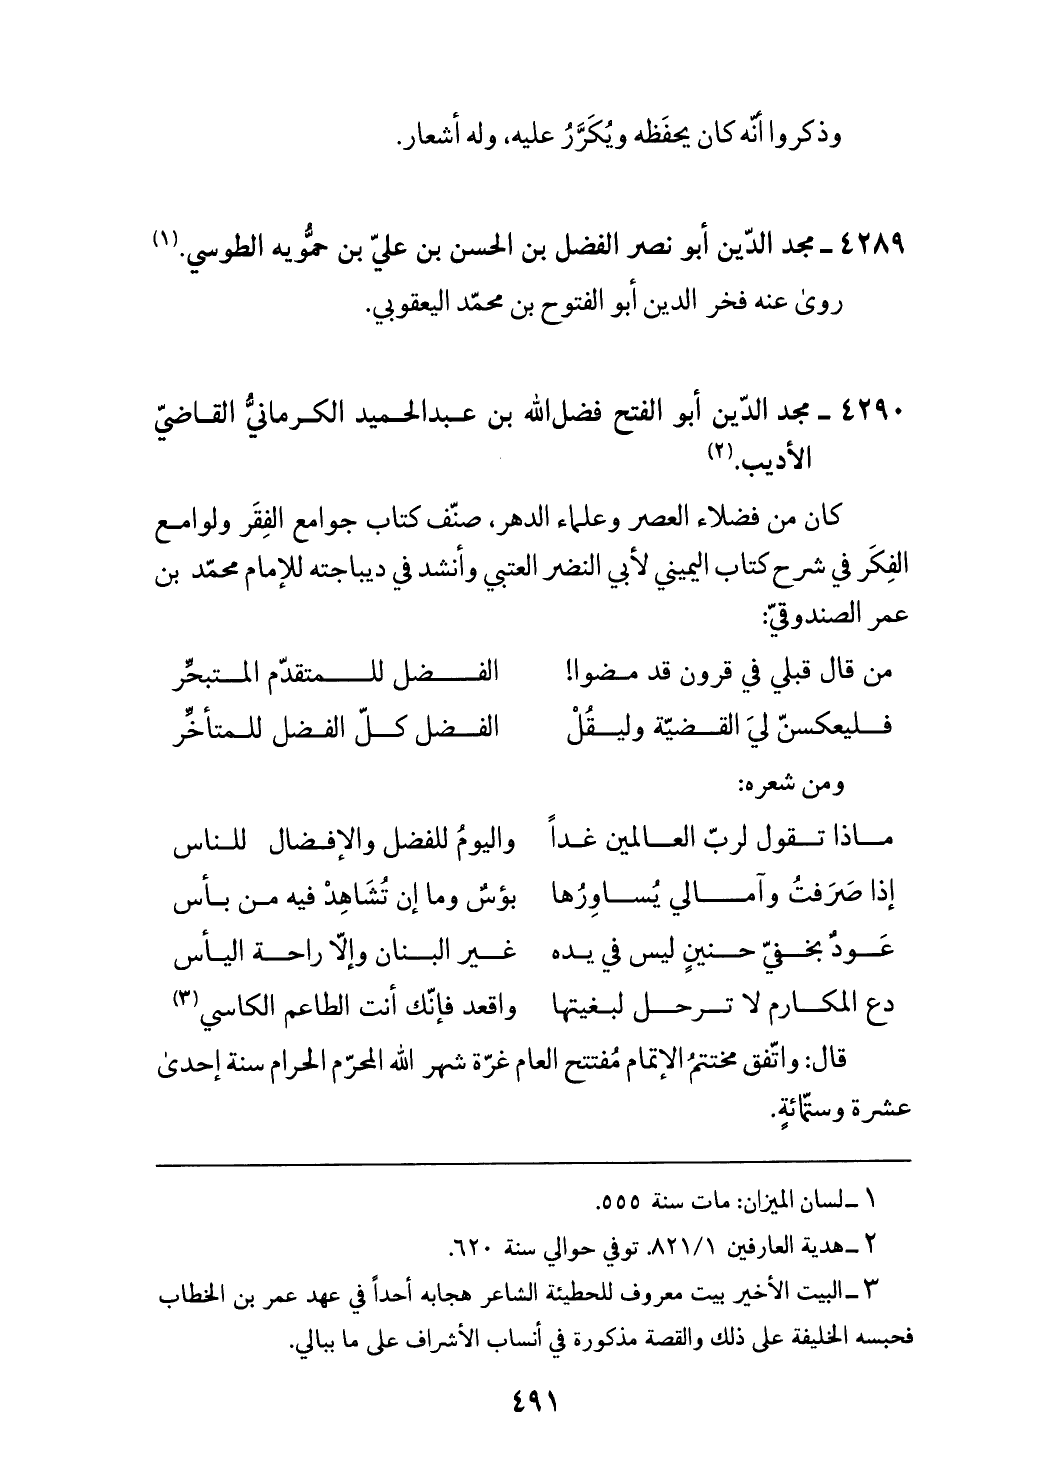 وذكروا أنّه كان يحفَظه ويُكَرَّرُ عليه، وله أشعار.
٤٢٨٩ ـ مجد الدّين أبو نصر الفضل بن الحسن بن عليّ بن حمُّويه الطوسي.(١)
روىٰ عنه فخر الدين أبو الفتوح بن محمّد اليعقوبي.
٤٢٩٠ ـ مجد الدّين أبو الفتح فضل‌الله بن عبدالحميد الكرمانيُّ القاضيّ
الأديب.(٢)
كان من فضلاء العصر وعلماء الدهر، صنّف كتاب جوامع الفِقَر ولوامع
الفِكَر في شرح كتاب اليميني لأبي النضر العتبي وأنشد في ديباجته للإمام محمّد بن
عمر الصندوقيّ:
من قال قبلي في قرون قد مضوا! الفضل للمتقدّم المتبحِّر
فليعكسنّ ليَ القضيّة وليقُلْ الفضل كلّ الفضل للمتأخِّر
ومن شعره:
ماذا تقول لربّ العالمين غداً واليومُ للفضل والإفضال للناس
إذا صَرَفتُ وآمالي يُساوِرُها بؤسٌ وما إن تُشَاهِدْ فيه من بأس
عَودٌ بخفيّ حنينٍ ليس في يده غير البنان وإلّا راحة اليأس
دع المكارم لا ترحل لبغيتها واقعد فإنّك أنت الطاعم الكاسي(٣)
قال: واتّفق مختتمُ الإتمام مُفتتح العام غرّة شهر الله المحرّم الحرام سنة إحدىٰ
عشرة وستّمائةٍ.
١ ـ لسان الميزان: مات سنة ٥٥٥.
٢ ـ هدية العارفين ٨٢١/١. توفي حوالي سنة ٦٢٠.
٣ ـ البيت الأخير بيت معروف للحطيئة الشاعر هجابه أحداً في عهد عمر بن الخطاب
فحبسه الخليفة على ذلك والقصة مذكورة في أنساب الأشراف على ما ببالي.
٤٩١